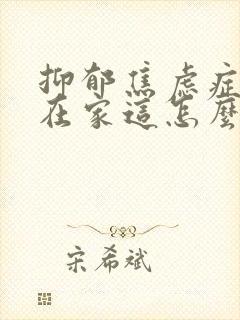 抑郁焦虑症
在家這怎麼
宋希斌